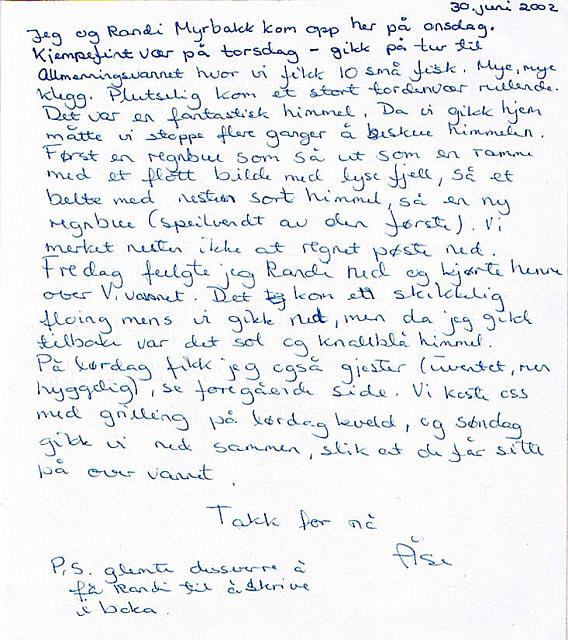 30. juni 2002
Jeg og Randi Myrbakk kom opp her på onsdag.
Kjempefint vær på torsdag - gikk på tur til
Allmenningsvannet hvor vi fikk 10 små fisk. Mye, mye
klegg. Plutselig kom et stort tordenvær rullende.
Det var en fantastisk himmel. Da vi gikk hjem
måtte vi stoppe flere ganger å beskue himmelen.
Først en regnbue som så ut som en ramme
med et flott bilde med lyse fjell, så et
belte med nesten sort himmel, så en ny
regnbue (speilvendt av den første). Vi
merket nesten ikke at regnet pøste ned.
Fredag fulgte jeg Randi ned og kjørte henne
over V.vannet. Det kom ett skikkelig
floing mens vi gikk ned, men da jeg gikk
tilbake var det sol og knallblå himmel.
På lørdag fikk jeg også gjester (uventet, men
hyggelig), se foregående side. Vi koste oss
med grilling på lørdag kveld, og søndag
gikk vi ned sammen, slik at de får sitte
på over vannet.
Takk for nå
Åse
P.S. glemte dessverre å
få Randi til å skrive
i boka.